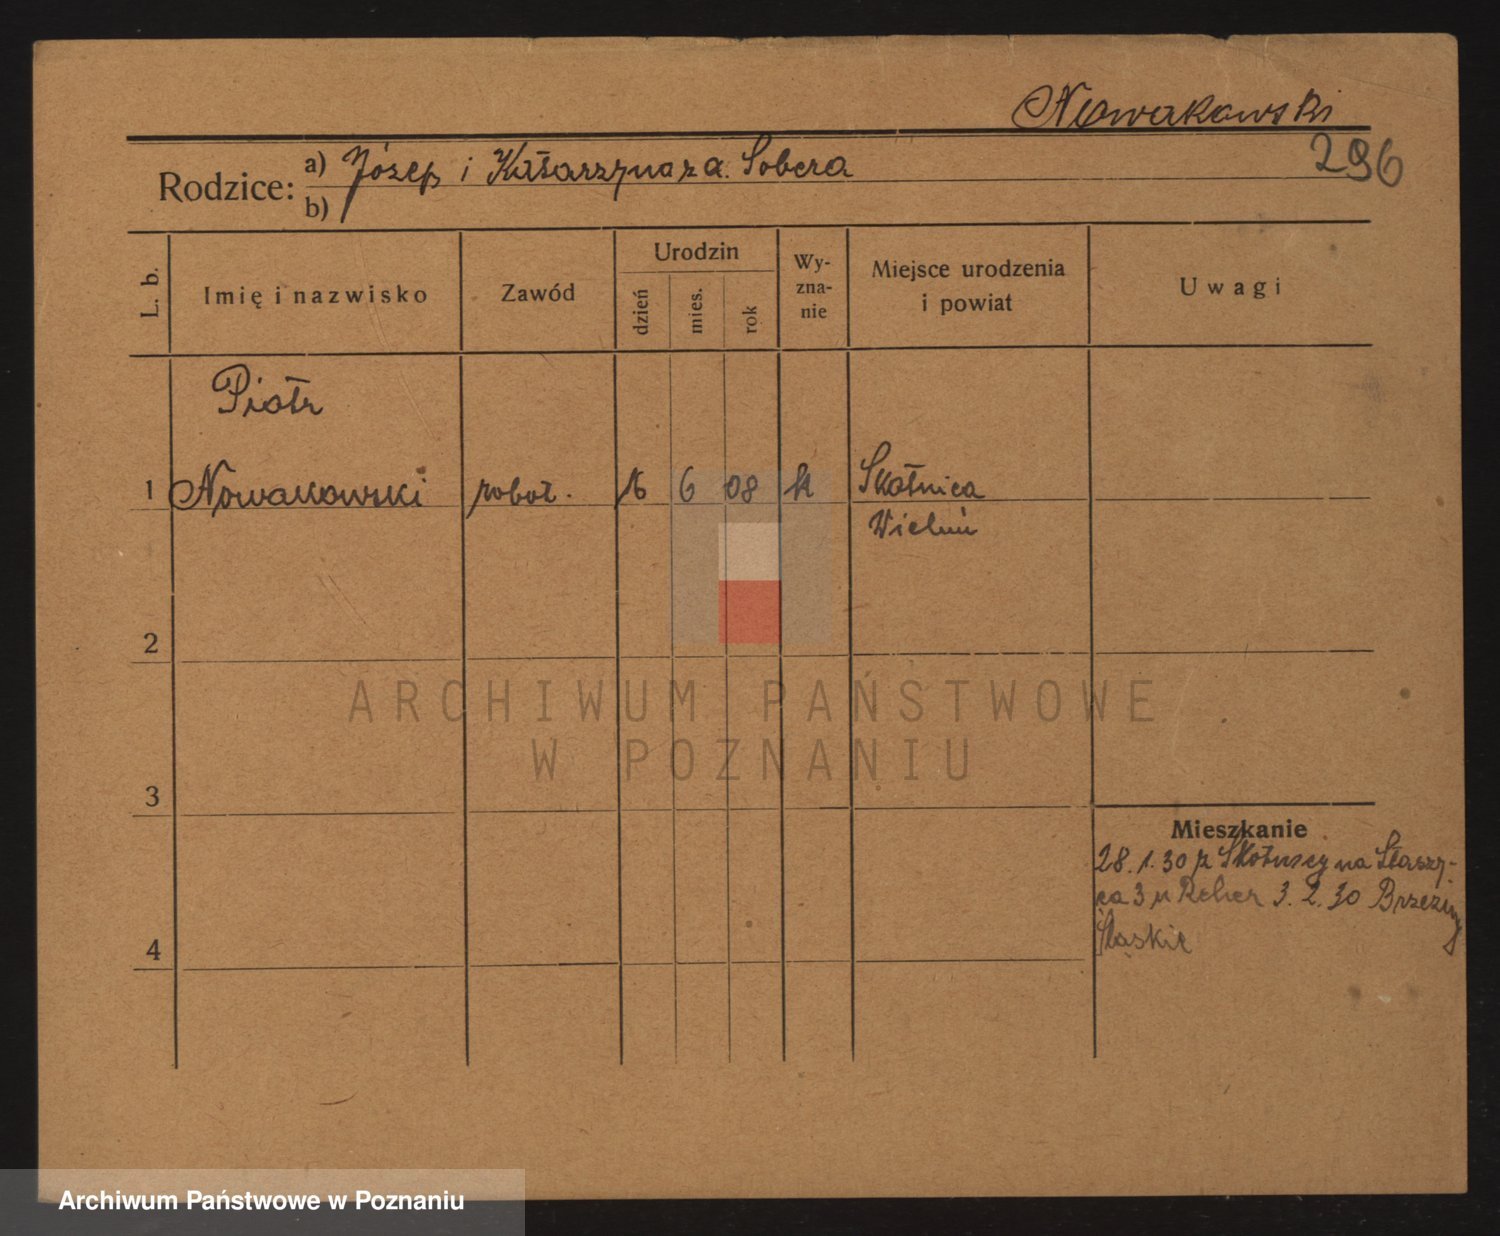 Nowakowski
296
Rodzice: a) Józef i Katarzyna z d. Sobera
b)
L. b.
Imię i nazwisko
Zawód
Urodzin
dzień
mies.
rok
Wy-
zna-
nie
Miejsce urodzenia
i powiat
Uwagi
Piotr
1 Nowakowski robot. 16 6 08 k Skotnica
Wieluń
2
ARCHIWUM PAŃSTWOWE
W POZNANIU
3
Mieszkanie
28.1.30 z Skotnicy na Staszy-
ca 3 u Reher 3.2.30 Brzeziny
Śląskie
4
Archiwum Państwowe w Poznaniu